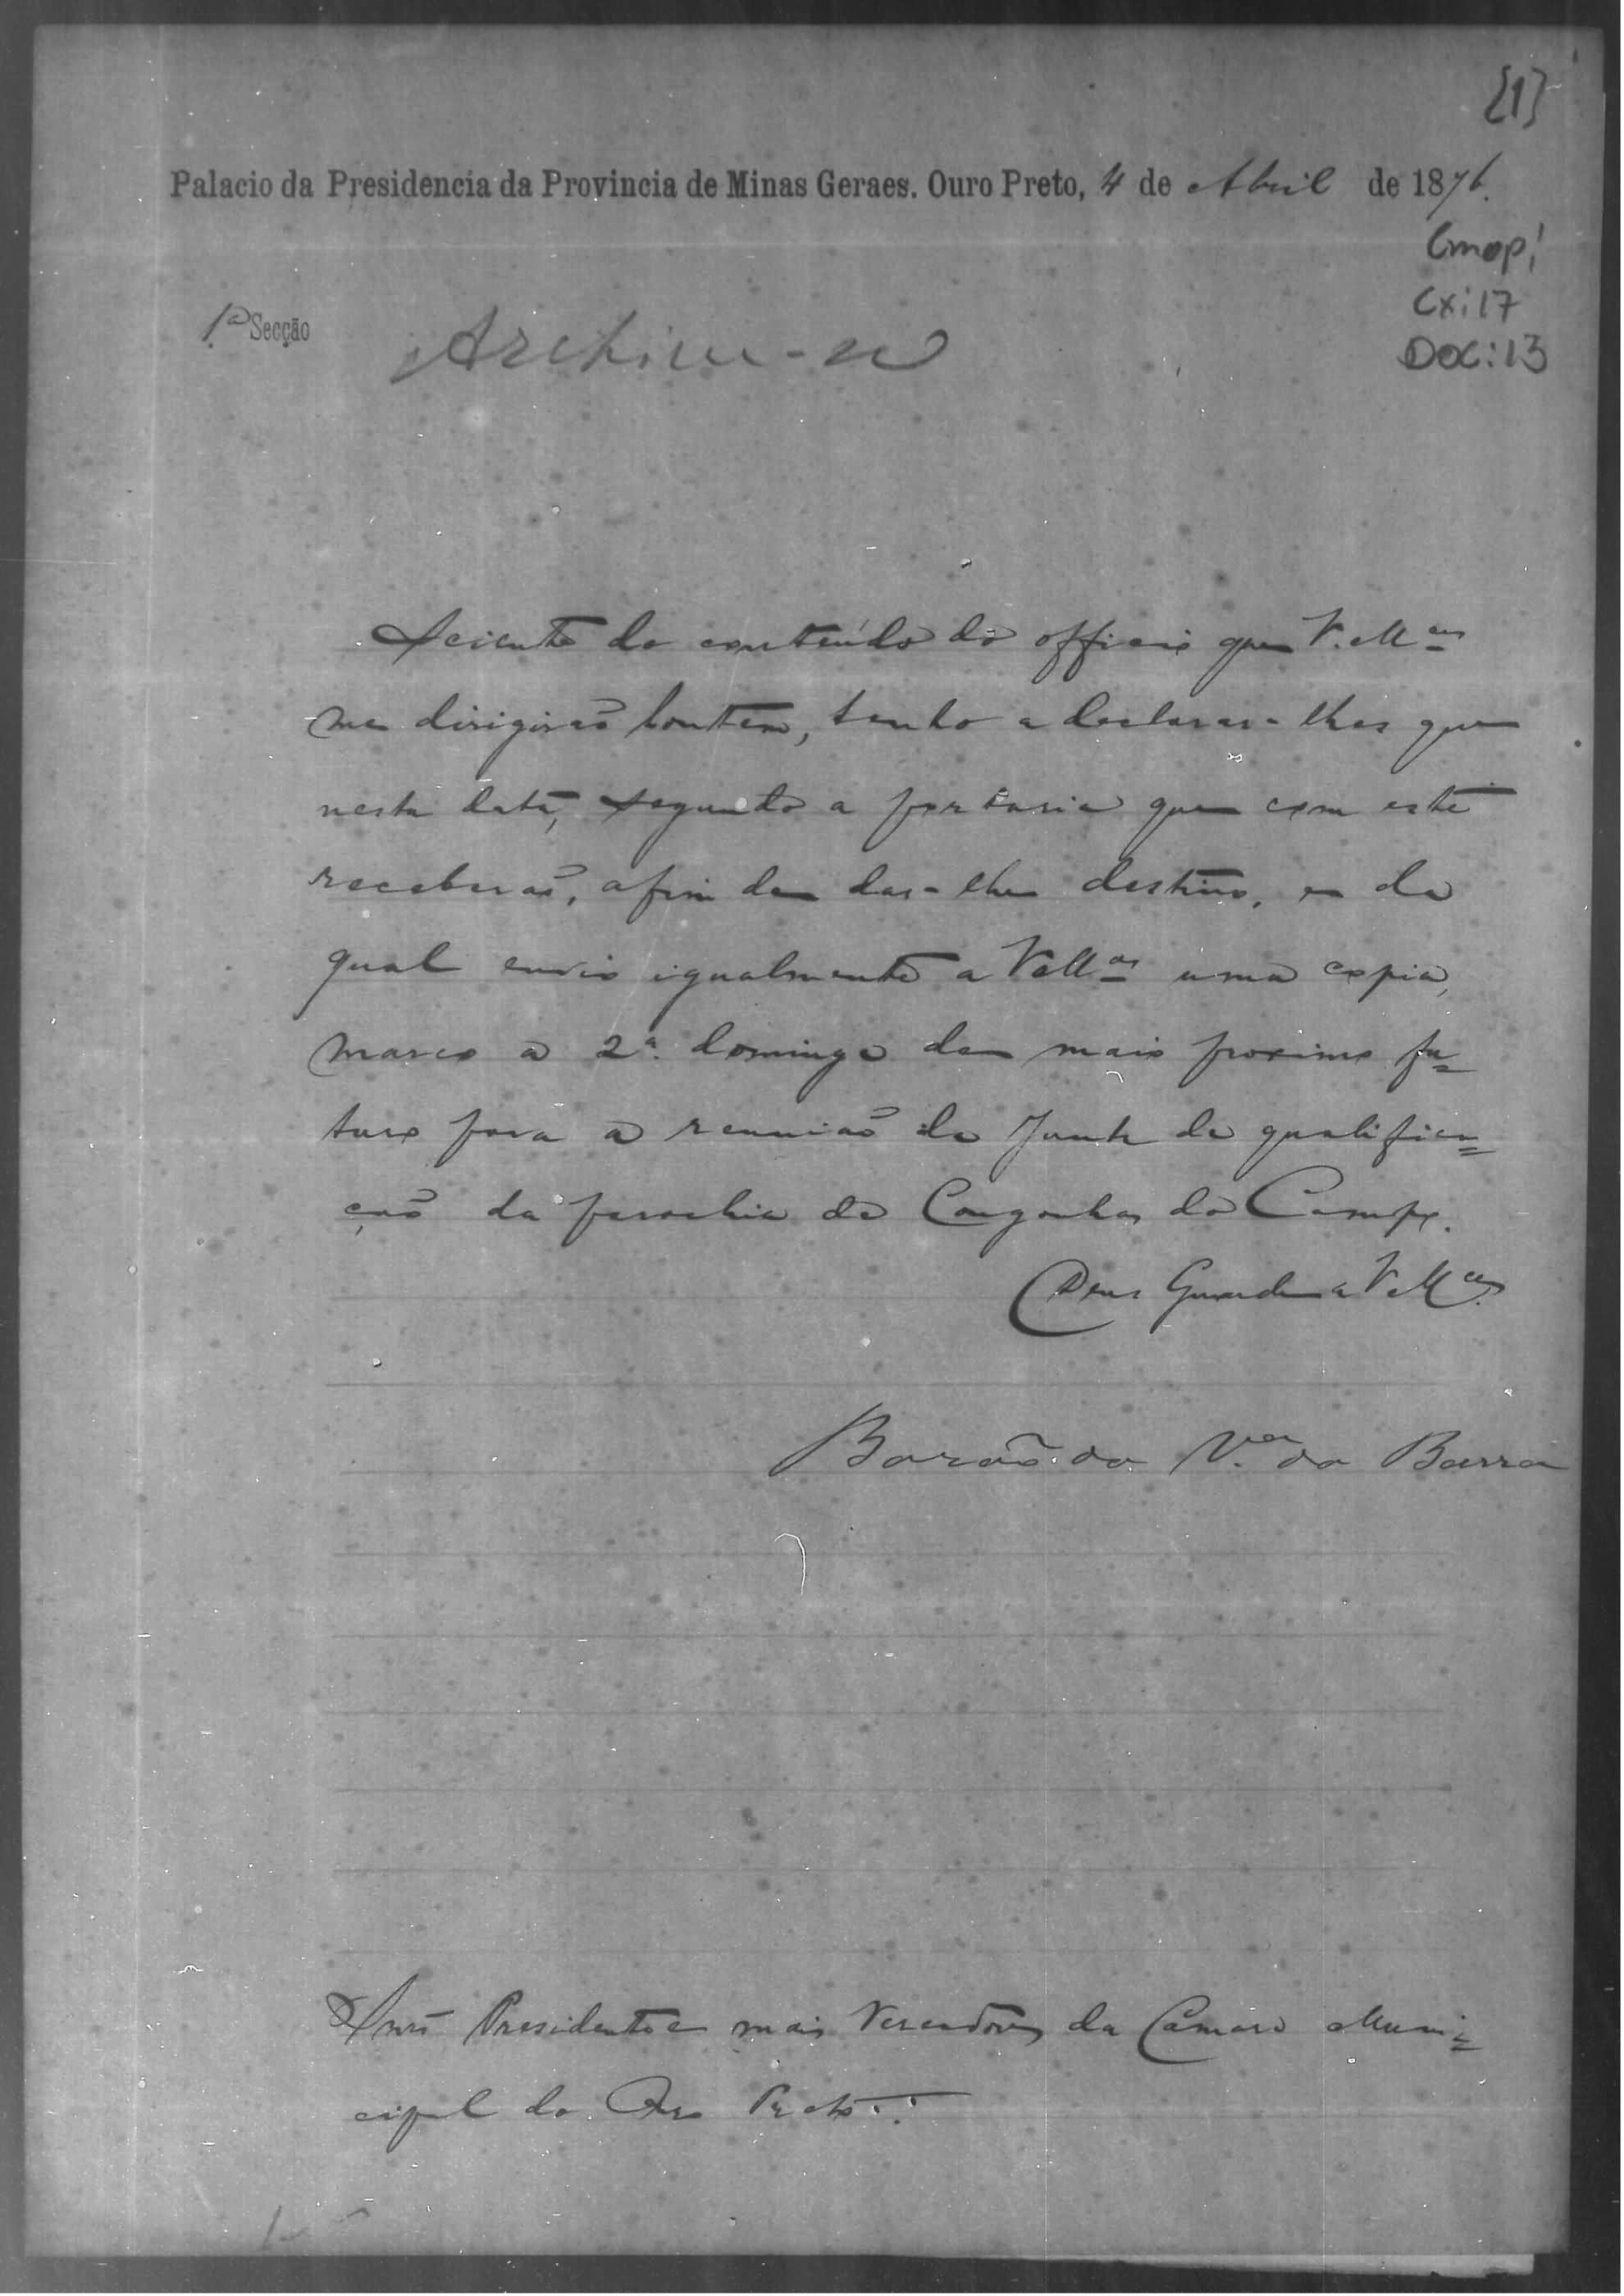 {1}
Palacio da Presidencia da Provincia de Minas Geraes. Ouro Preto, 4 de Abril de 1876.
Cmop;
Cx:17
1.ª Secção
Archive-se
DOC:13
Sciente do conteúdo do officio que V. M.ces
me dirigirão hontem, tenho a declarar-lhes que
nesta data, segundo a portaria que com este
receberão, afim de dar-lhe destino, e da
qual envio igualmente a VM.ces uma copia,
marco o 2º domingo de maio proximo fu=
turo para a reunião da Junta de qualifica=
ção da parochia de Congonhas do Campo.
Deus Guarde a VM.ces
Barão da V.ª da Barra
Snrs Presidente e mais Vereadores da Camara Muni=
cipal do Ouro Preto.